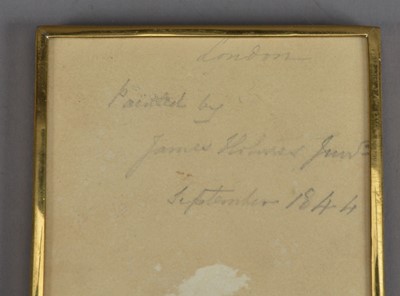 London
Painted by
James Holmes Junr
September 1844